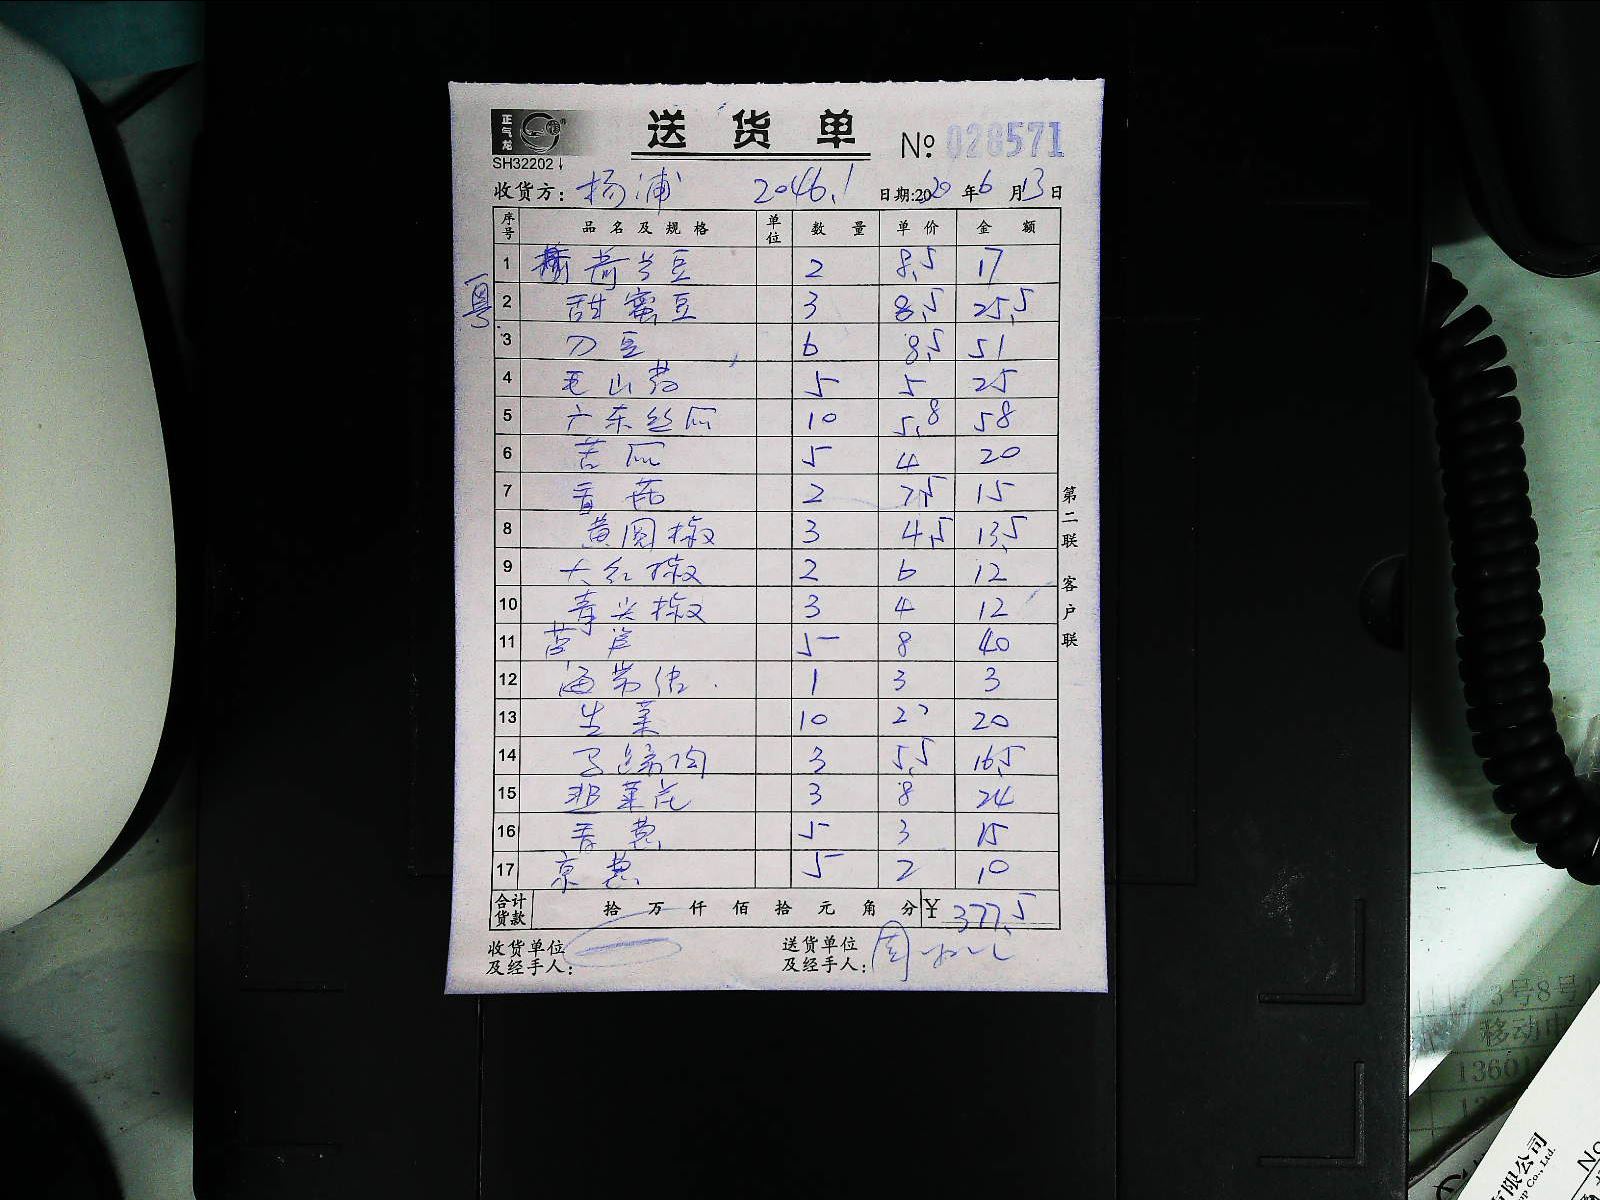 正气龙
送货单 № 028571
SH32202
收货方: 杨浦 2046.1 日期:2020年6月13日
序号 品名及规格 单位 数量 单价 金额
粤
1 荷兰豆 2 8.5 17
2 甜蜜豆 3 8.5 25.5
3 刀豆 6 8.5 51
4 毛山药 5 5 25
5 广东丝瓜 10 5.8 58
6 苦瓜 5 4 20
7 香菇 2 7.5 15
8 黄圆椒 3 4.5 13.5
9 大红椒 2 6 12
10 青尖椒 3 4 12
11 芦笋 5 8 40
12 海带结 1 3 3
13 生菜 10 2 20
14 马蹄肉 3 5.5 16.5
15 韭菜花 3 8 24
16 香葱 5 3 15
17 京葱 5 2 10
合计货款 拾万仟佰拾元角分 ¥ 377.5
收货单位及经手人: 送货单位及经手人: 周
第二联 客户联
3号8号
移动电
1360
有限公司
Co., Ltd.
No